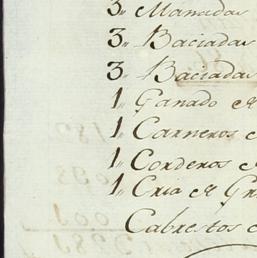 3,, Manadas
3,, Baciadas
3,, Baciadas
1,, Ganado
1,, Carneros
1,, Corderos
1,, Cria
Cabrestos